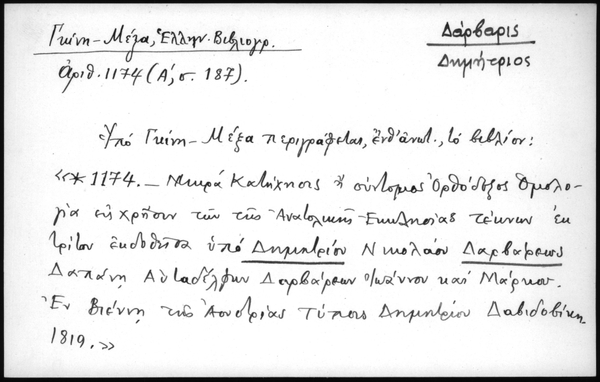 Γκίνη - Μέξα, Ἑλλην. Βιβλιογρ.
ἀριθ. 1174 (Α΄, σ. 187).
Δάρβαρις
Δημήτριος
Ὑπό Γκίνη - Μέξα περιγράφεται, ἐνθ' ἀνωτ., τό βιβλίον:
«*1174. — Μικρά Κατήχησις ἤ σύντομος Ὀρθόδοξος Ὁμολο-
γία εἰς χρῆσιν τῶν τῆς Ἀνατολικῆς Ἐκκλησίας τέκνων ἐκ
τρίτου ἐκδοθεῖσα ὑπό Δημητρίου Νικολάου Δαρβάρεως
Δαπάνῃ Αὐταδέλφων Δαρβάρεων Ἰωάννου καί Μάρκου.
Ἐν Βιέννῃ τῆς Αουστρίας Τύποις Δημητρίου Δαβιδοβίκη
1819.»